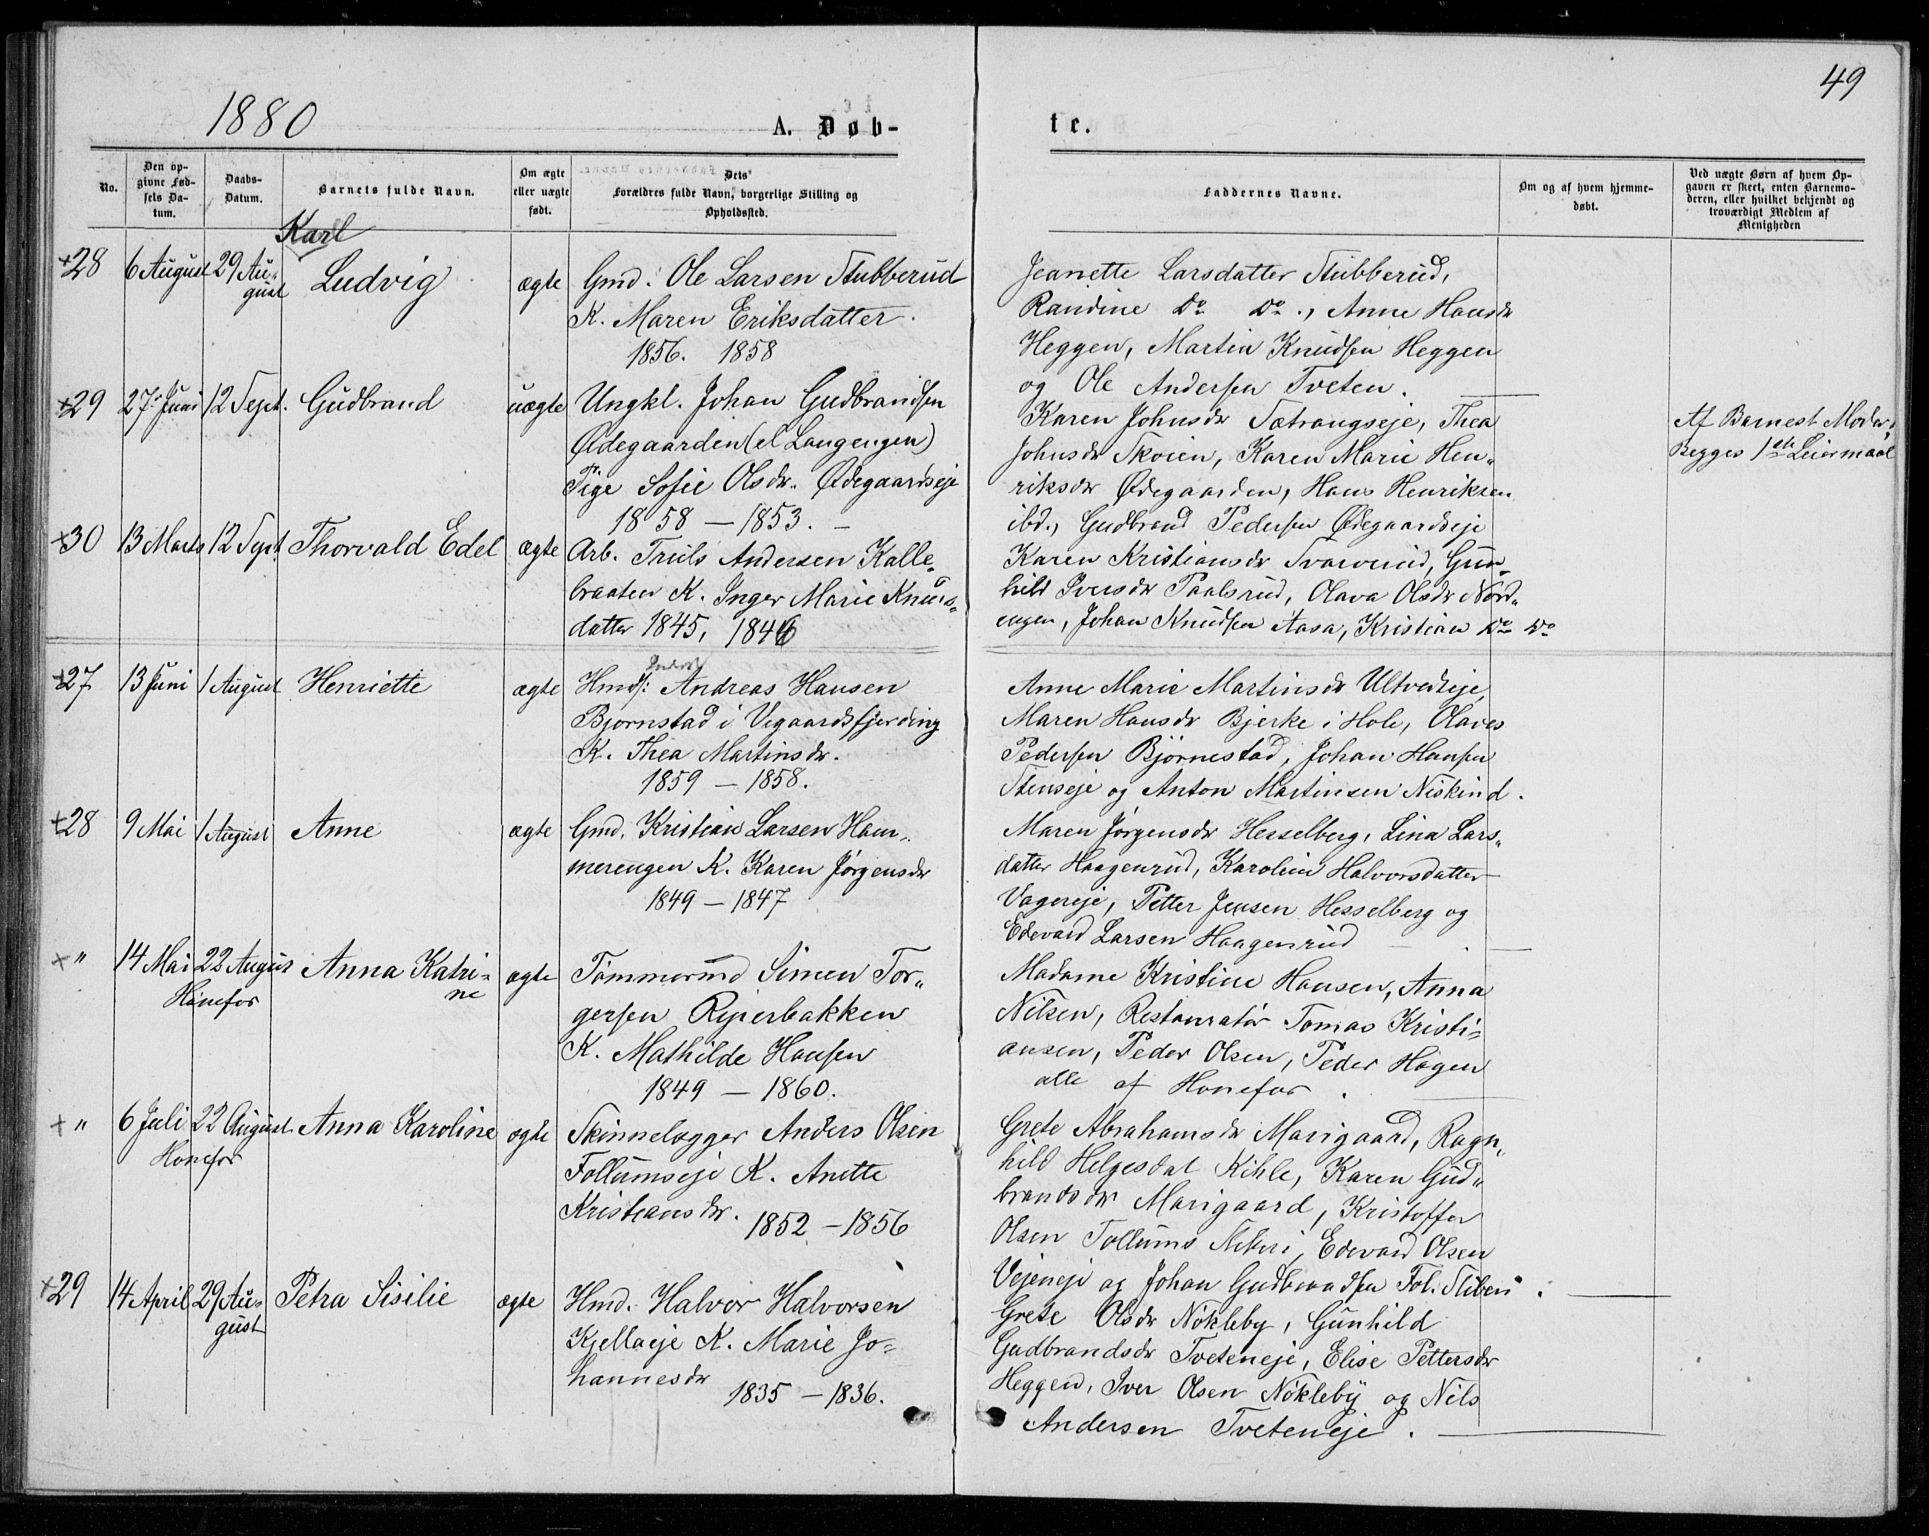 49
1880
A. Døb-
te.
No.
Den op-
givne Fød-
sels Da-
tum.
Daabs-
Datum.
Barnets fulde Navn.
Om ægte
eller uægte
født.
Dets
Forældres fulde Navn, borgerlige Stilling og
Opholdssted.
Faddernes Navne.
Om og af hvem hjemme-
døbt.
Ved uægte Børn af hvem Op-
gaven er skeet, enten Barnemo-
deren, eller hvilket bekjendt og
troværdigt Medlem af
Menigheden
Karl
+28 6 August 29 Au-
gust
Ludvig
ægte
Gmd. Ole Larsen Stubberud
K. Maren Eriksdatter.
1856. 1858
Jeanette Larsdatter Stubberud,
Randine Do Do., Anne Hansdr
Heggen, Martin Knudsen Heggen
og Ole Andersen Tveten.
+29 27 Juni 12 Sept. Gudbrand
uægte
Ungkl. Johan Gudbrandsen
Ødegaarden (el Langengen)
Pige Sofie Olsdr. Ødegaardseje
1858 — 1853. —
Karen Johnsdr Sætrangseje, Thea
Johnsdr Skoien, Karen Marie Hen-
riksdr Ødegaarden, Hans Henriksen
ibd., Gudbrand Pedersen Ødegaardseje
Af Barnest Moder,
Begges 1ste Leiermaal
+30 13 Marts 12 Sept. Thorvald Edel
ægte
Arb. Truls Andersen Kalle-
braaten K. Inger Marie Knuds-
datter 1845, 1846
Karen Kristiansdr Svarverud, Gun-
hild Iversdr Paalsrud, Olava Olsdr Nord-
engen, Johan Knudsen Aasa, Kristian Do Do
+27 13 Juni 1 August Henriette
ægte
Hmd: Andreas Hansen
Bjornstad i Vegaardsfjerding
K. Thea Martinsdr.
1859 — 1858.
Anne Marie Martinsdr Ultvedteje,
Maren Hansdr Bjerke i Hole, Olaves
Pedersen Bjørnestad, Johan Hansen
Stenseje og Anton Martinsen Niskind.
+28 9 Mai 1 August Anne
ægte
Gmd. Kristian Larsen Ham-
merengen K. Karen Jørgensdr
1849 — 1847
Maren Jørgensdr Hesselberg, Lina Lars-
datter Haagenrud, Karoline Halvorsdatter
Vagereje, Petter Jensen Hesselberg og
Edevard Larsen Haagenrud
+ " 14 Mai 22 August
Hønefos
Anna Katri-
ne
ægte
Tømmermd Simen Tor-
gersen Ripierbakken
K. Mathilde Hansen
1849 — 1860.
Madame Kristine Hansen, Anna
Nilsen, Restauratør Tomas Kristi-
ansen, Peder Olsen, Peder Hagen
alle af Honefos.
+ " 6 Juli 22 August
Honefos
Anna Karoline
ægte
Skindelogger Anders Olsen
Follumseje K. Anette
Kristiansdr. 1852 — 1856
Grete Abrahamsdr Marigaard, Ragn-
hild Helgesdat Kihle, Karen Gud-
brandsdr Marigaard, Kristoffer
Olsen Follums Sliberi, Edevard Olsen
Vejeneje og Johan Gudbrandsen Fol. Sliberi.
+29 14 April 29 Au-
gust
Petra Sisilie
ægte
Hmd. Halvor Halvorsen
Kjellaeje K. Marie Jo-
hannesdr
1835 — 1836.
Grete Olsdr Nokleby, Gunhild
Gudbrandsdr Tveteneje, Elise Pettersdr
Heggen, Iver Olsen Nokleby og Nils
Andersen Tveteneje.